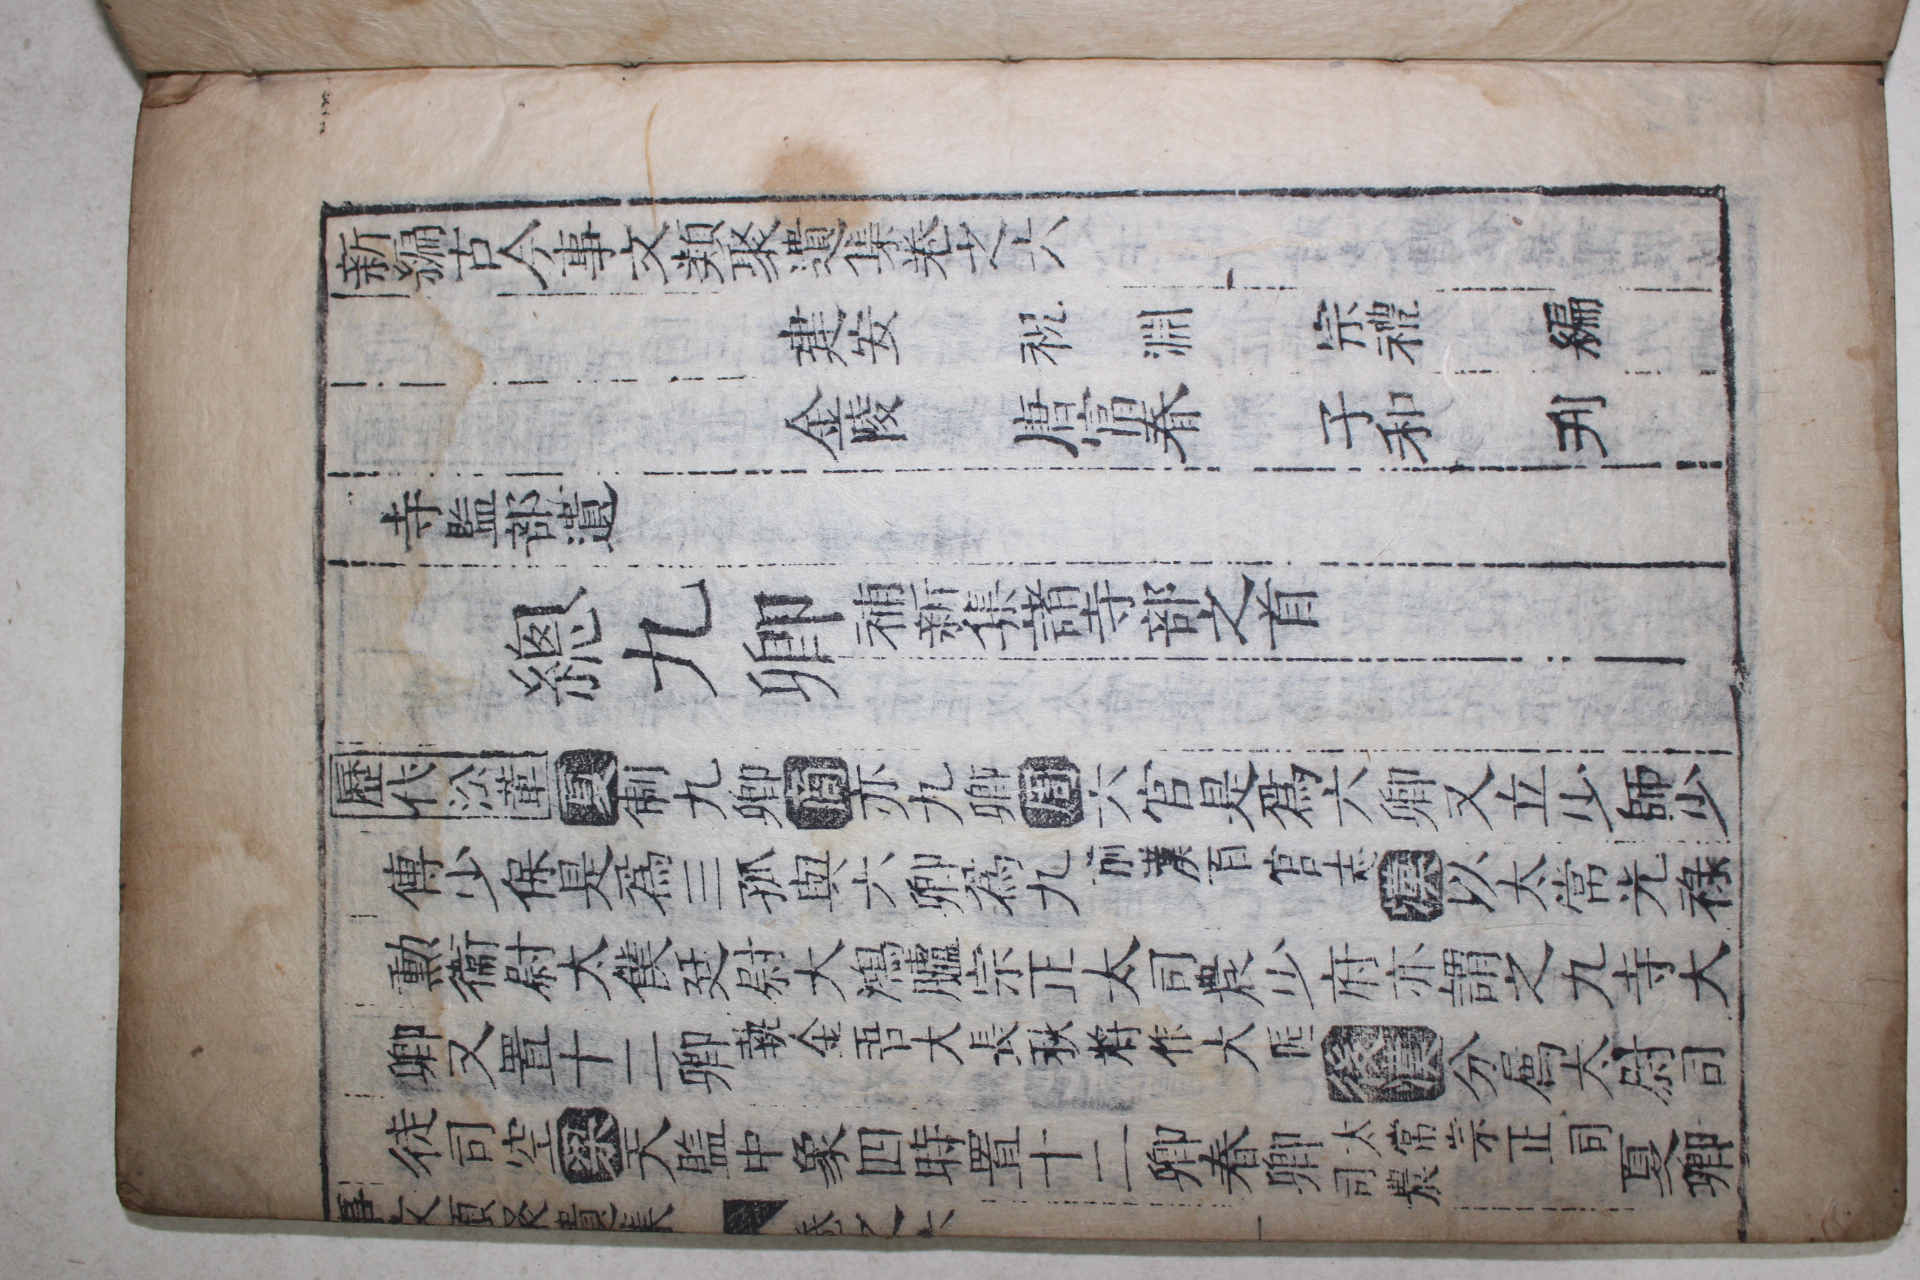 新編古今事文類聚遺集卷之六
建安 祝 淵 宗禮 編
金陵 唐富春 子和 刋
寺監部遺
總九卿 補新集諸寺部之首
歷代沿革 夏 制九卿 商 亦九卿 周 六官是爲六卿又立少師少
傅少保是爲三孤與六卿爲九 前漢百官志 漢 以太常光祿
勳衞尉太僕廷尉大鴻臚宗正太司農少府亦謂之九寺大
卿又置十二卿 執金吾大長秋將作大匠 後漢 分屬太尉司
徒司空 梁 天監中象四時置十二卿春卿 太常宗正司司農 夏卿
事文類聚遺集 卷之六 一